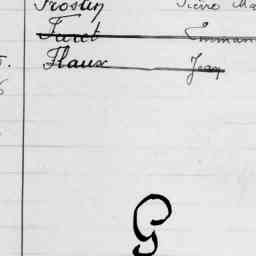 Frostin Pierre Ma
Furet Emman
Flaux Jean
G